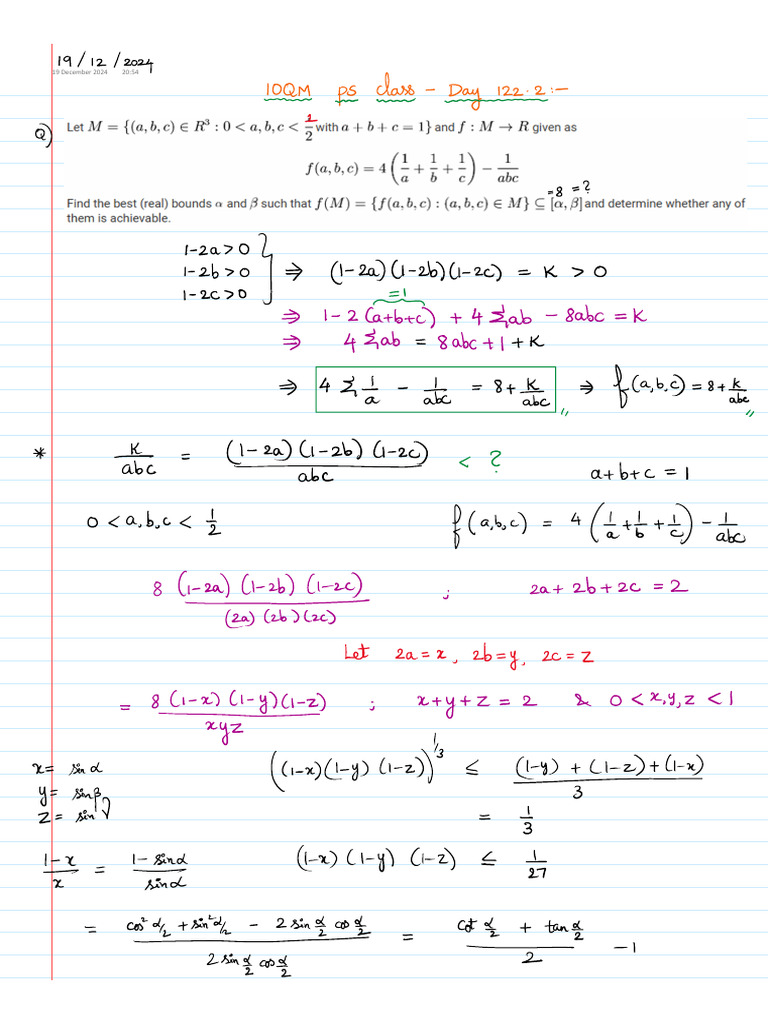 19/12/2024
19 December 2024 20:54
IOQM PS class - Day 122.2:-
Q) Let M = {(a, b, c) ∈ R³ : 0 < a, b, c < 1/2 with a + b + c = 1} and f : M → R given as
f(a, b, c) = 4(1/a + 1/b + 1/c) − 1/abc
=8 =?
Find the best (real) bounds α and β such that f(M) = {f(a, b, c) : (a, b, c) ∈ M} ⊆ [α, β] and determine whether any of
them is achievable.
1-2a>0
1-2b>0 ⇒ (1-2a)(1-2b)(1-2c) = K > 0
1-2c>0
=1
⇒ 1-2(a+b+c) + 4Σab - 8abc = K
⇒ 4Σab = 8abc+1+K
⇒ 4Σ1/a - 1/abc = 8+K/abc ⇒ f(a,b,c) = 8+K/abc
* K/abc = (1-2a)(1-2b)(1-2c)/abc < ?
a+b+c = 1
0 < a,b,c < 1/2 f(a,b,c) = 4(1/a+1/b+1/c) - 1/abc
8 (1-2a)(1-2b)(1-2c)/(2a)(2b)(2c) ; 2a+2b+2c = 2
Let 2a=x, 2b=y, 2c=z
= 8(1-x)(1-y)(1-z)/xyz ; x+y+z = 2 & 0<x,y,z<1
x= sinα ((1-x)(1-y)(1-z))^1/3 ≤ (1-y)+(1-z)+(1-x)/3
y= sinβ
z= sinγ = 1/3
1-x/x = 1-sinα/sinα (1-x)(1-y)(1-z) ≤ 1/27
= cos²α/2 + sin²α/2 - 2sinα/2 cosα/2 / 2sinα/2 cosα/2 = cotα/2 + tanα/2 / 2 - 1